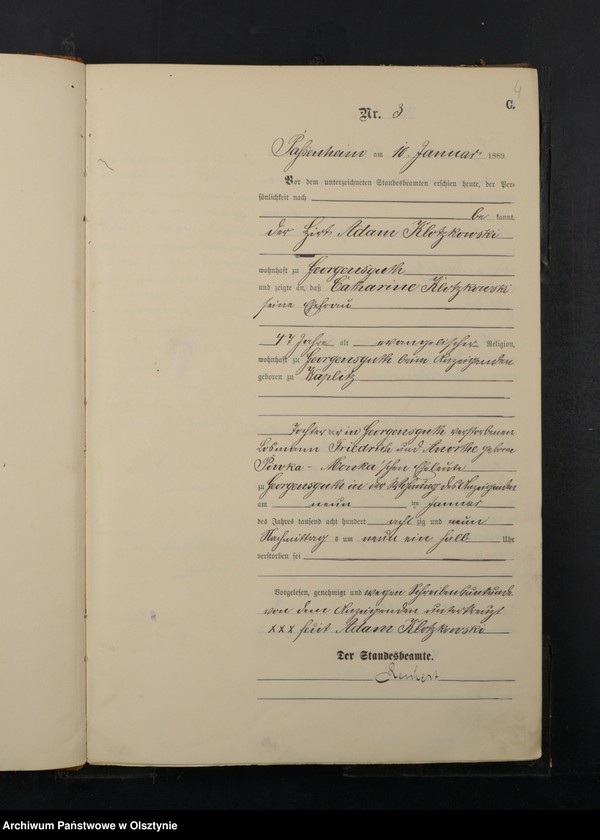 4
C.
Nr. 3
Passenheim am 10. Januar 1889.
Vor dem unterzeichneten Standesbeamten erschien heute, der Per-
sönlichkeit nach
be kannt,
der Hirt Adam Klotzkowski
wohnhaft zu Georgensguth
und zeigte an, daß Catharine Klotzkowski
seine Ehefrau
77 Jahre alt evangelischer Religion,
wohnhaft zu Georgensguth beim Anzeigenden
geboren zu Kaplitz
Tochter der in Georgensguth verstorbenen
Losmann Friedrich und Anorthe geborne
Piwka-Monka'schen Eheleute
zu Georgensguth in der Wohnung des Anzeigenden
am neun ten Januar
des Jahres tausend acht hundert acht zig und neun
Nachmittag s um neun ein halb Uhr
verstorben sei
Vorgelesen, genehmigt und wegen Schreibensunkunde
von dem Anzeigenden unterkreuzt
xxx heißt Adam Klotzkowski
Der Standesbeamte.
Archiwum Państwowe w Olsztynie